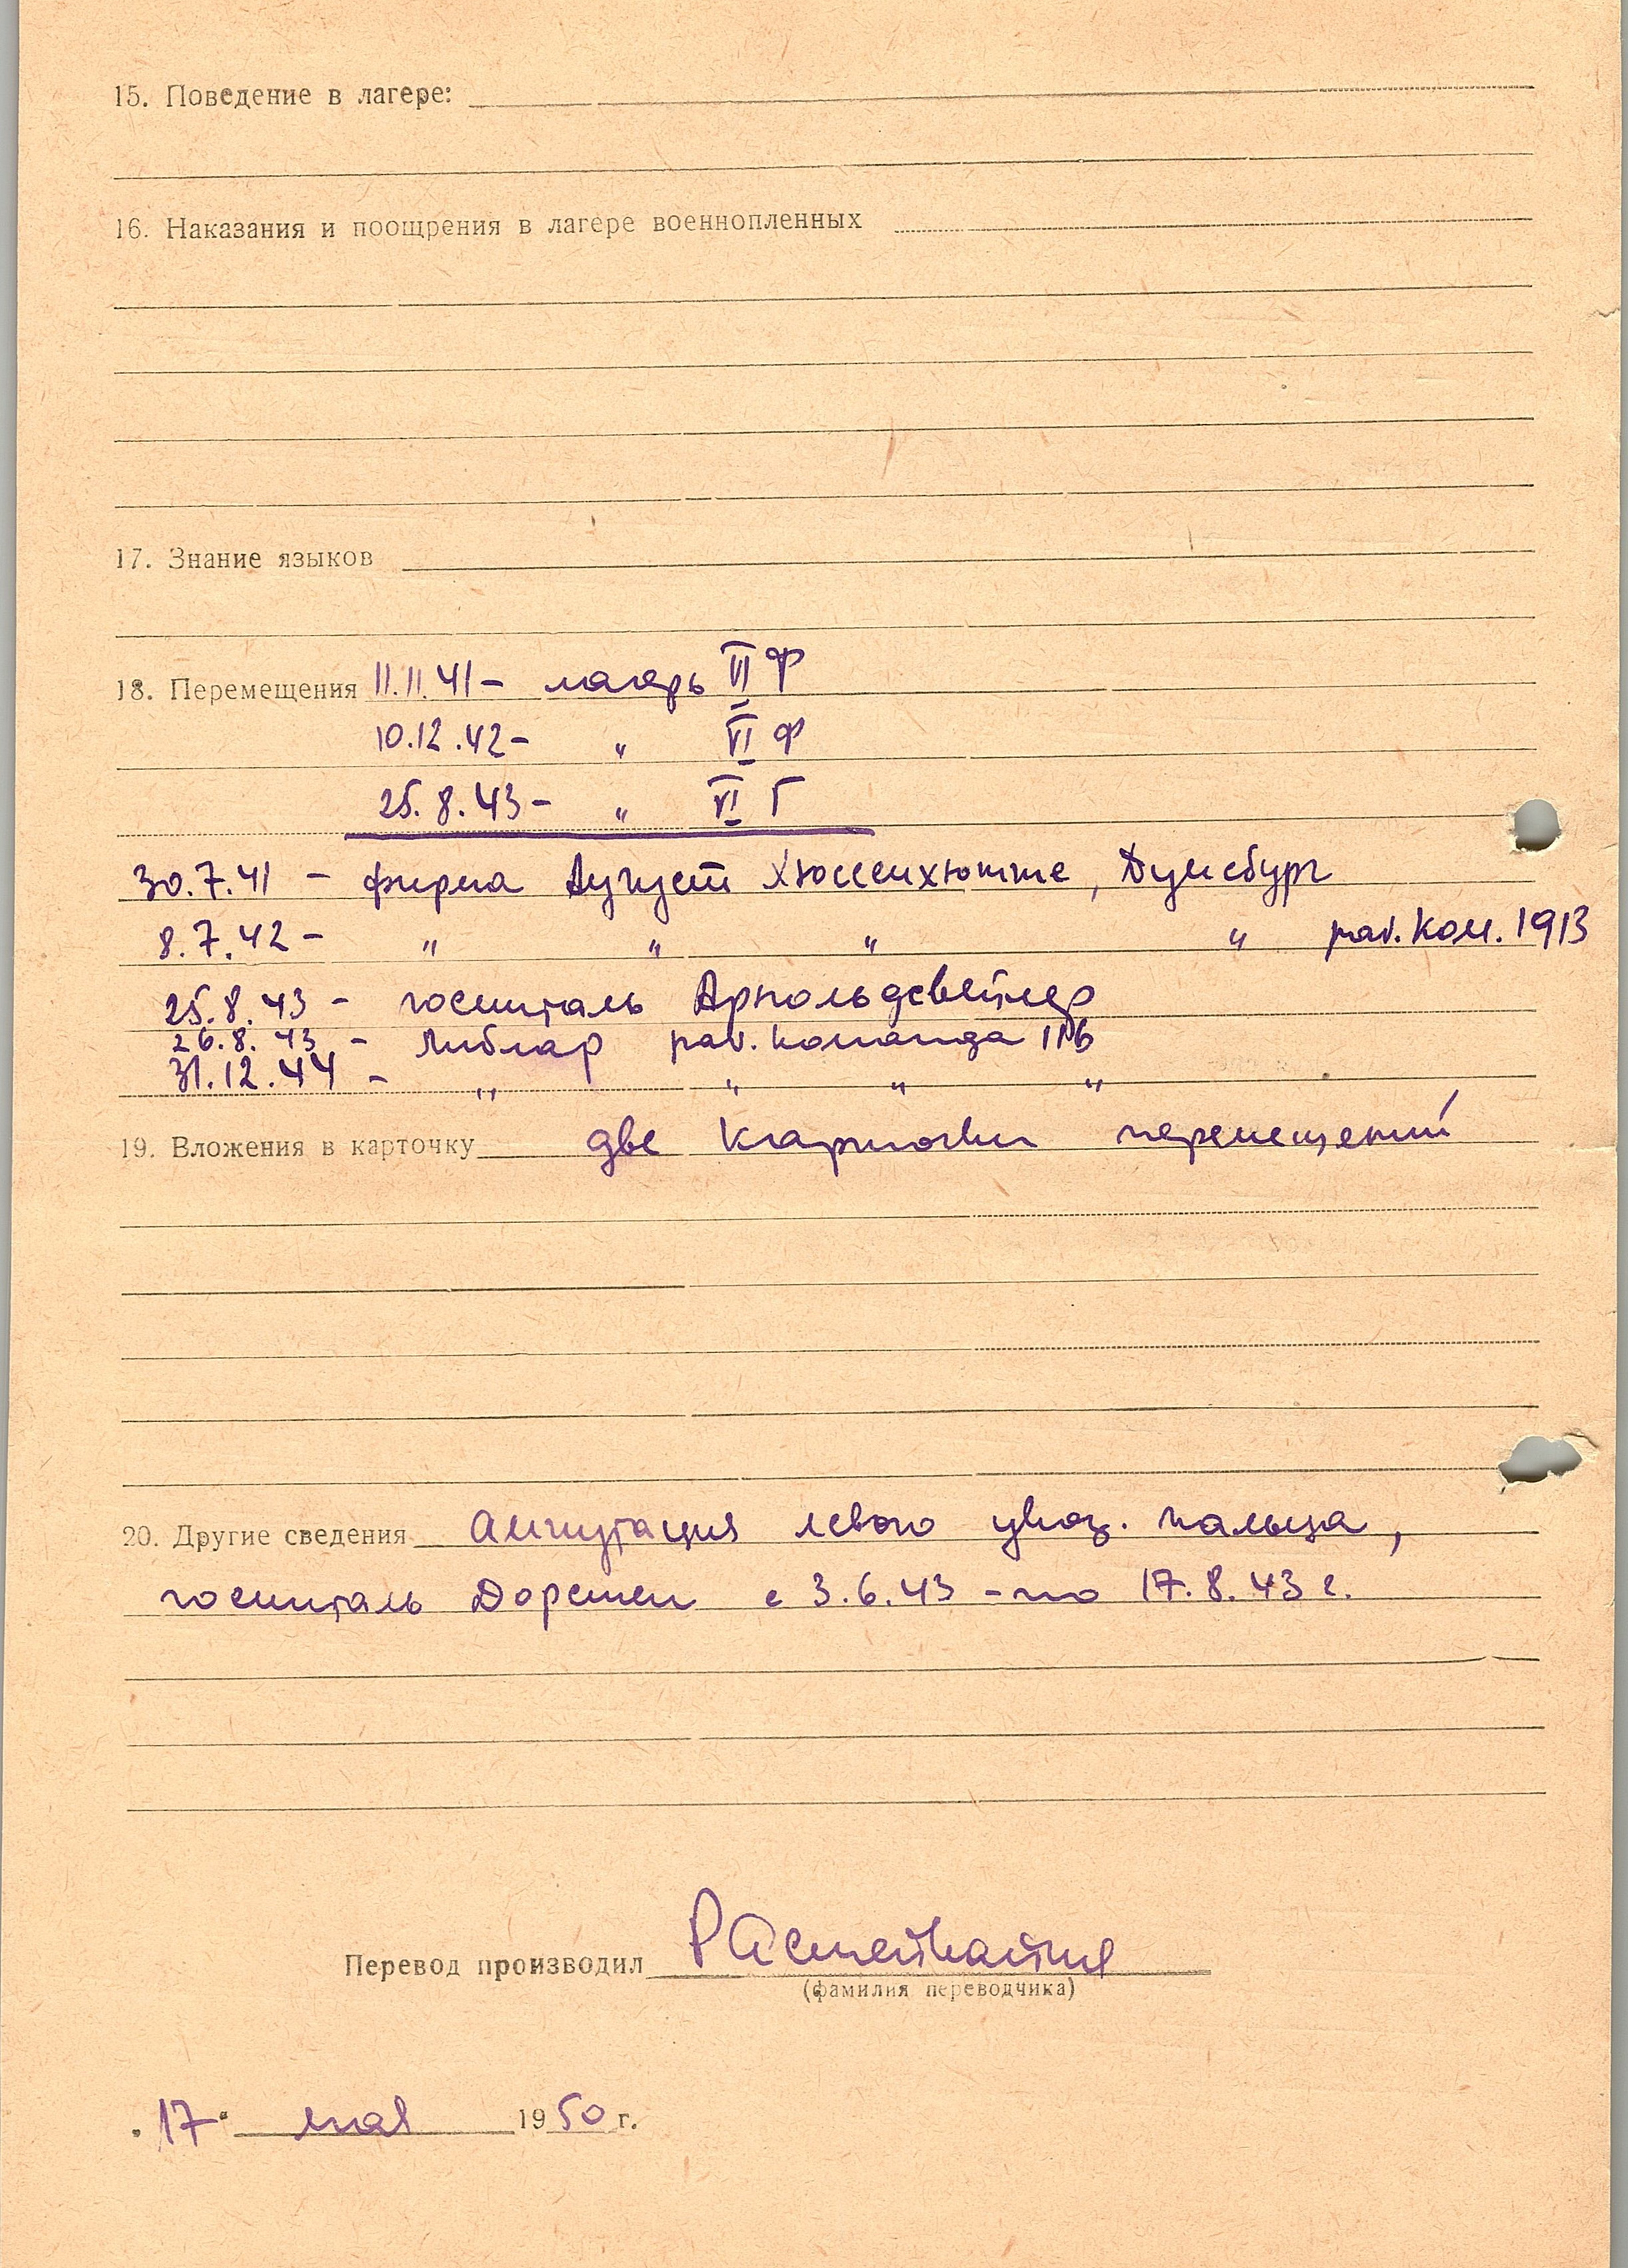 15. Поведение в лагере:
16. Наказания и поощрения в лагере военнопленных
17. Знание языков
18. Перемещения 11.11.41 – лагерь VI Ф
10.12.42 – " VI Ф
25.8.43 – " VI Г
30.7.41 – фирма Август Хюссенхютте, Дуисбург
8.7.42 – " " " " раб. ком. 1913
25.8.43 – госпиталь Арнольдсвейлер
26.8.43 – Либлар раб. команда
31.12.44 – " " " "
19. Вложения в карточку две карточки перемещений
20. Другие сведения Ампутация левого указ. пальца,
госпиталь Дорстен с 3.6.43 – по 17.8.43 г.
Перевод производил
(фамилия переводчика)
"17" мая 1950 г.